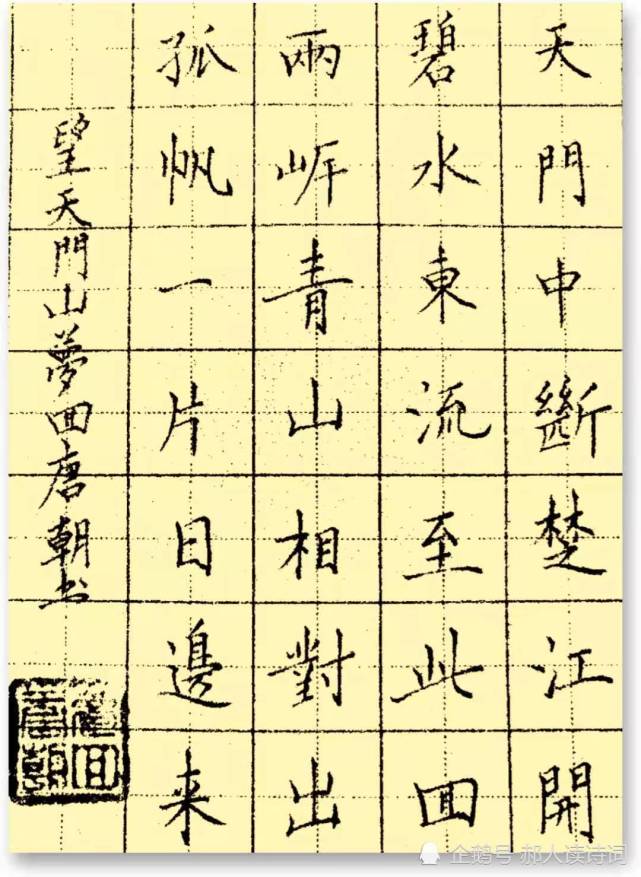 天門中斷楚江開
碧水東流至此回
兩岸青山相對出
孤帆一片日邊来
望天門山夢回唐朝书
夢回唐朝
企鹅号 郝人读诗词